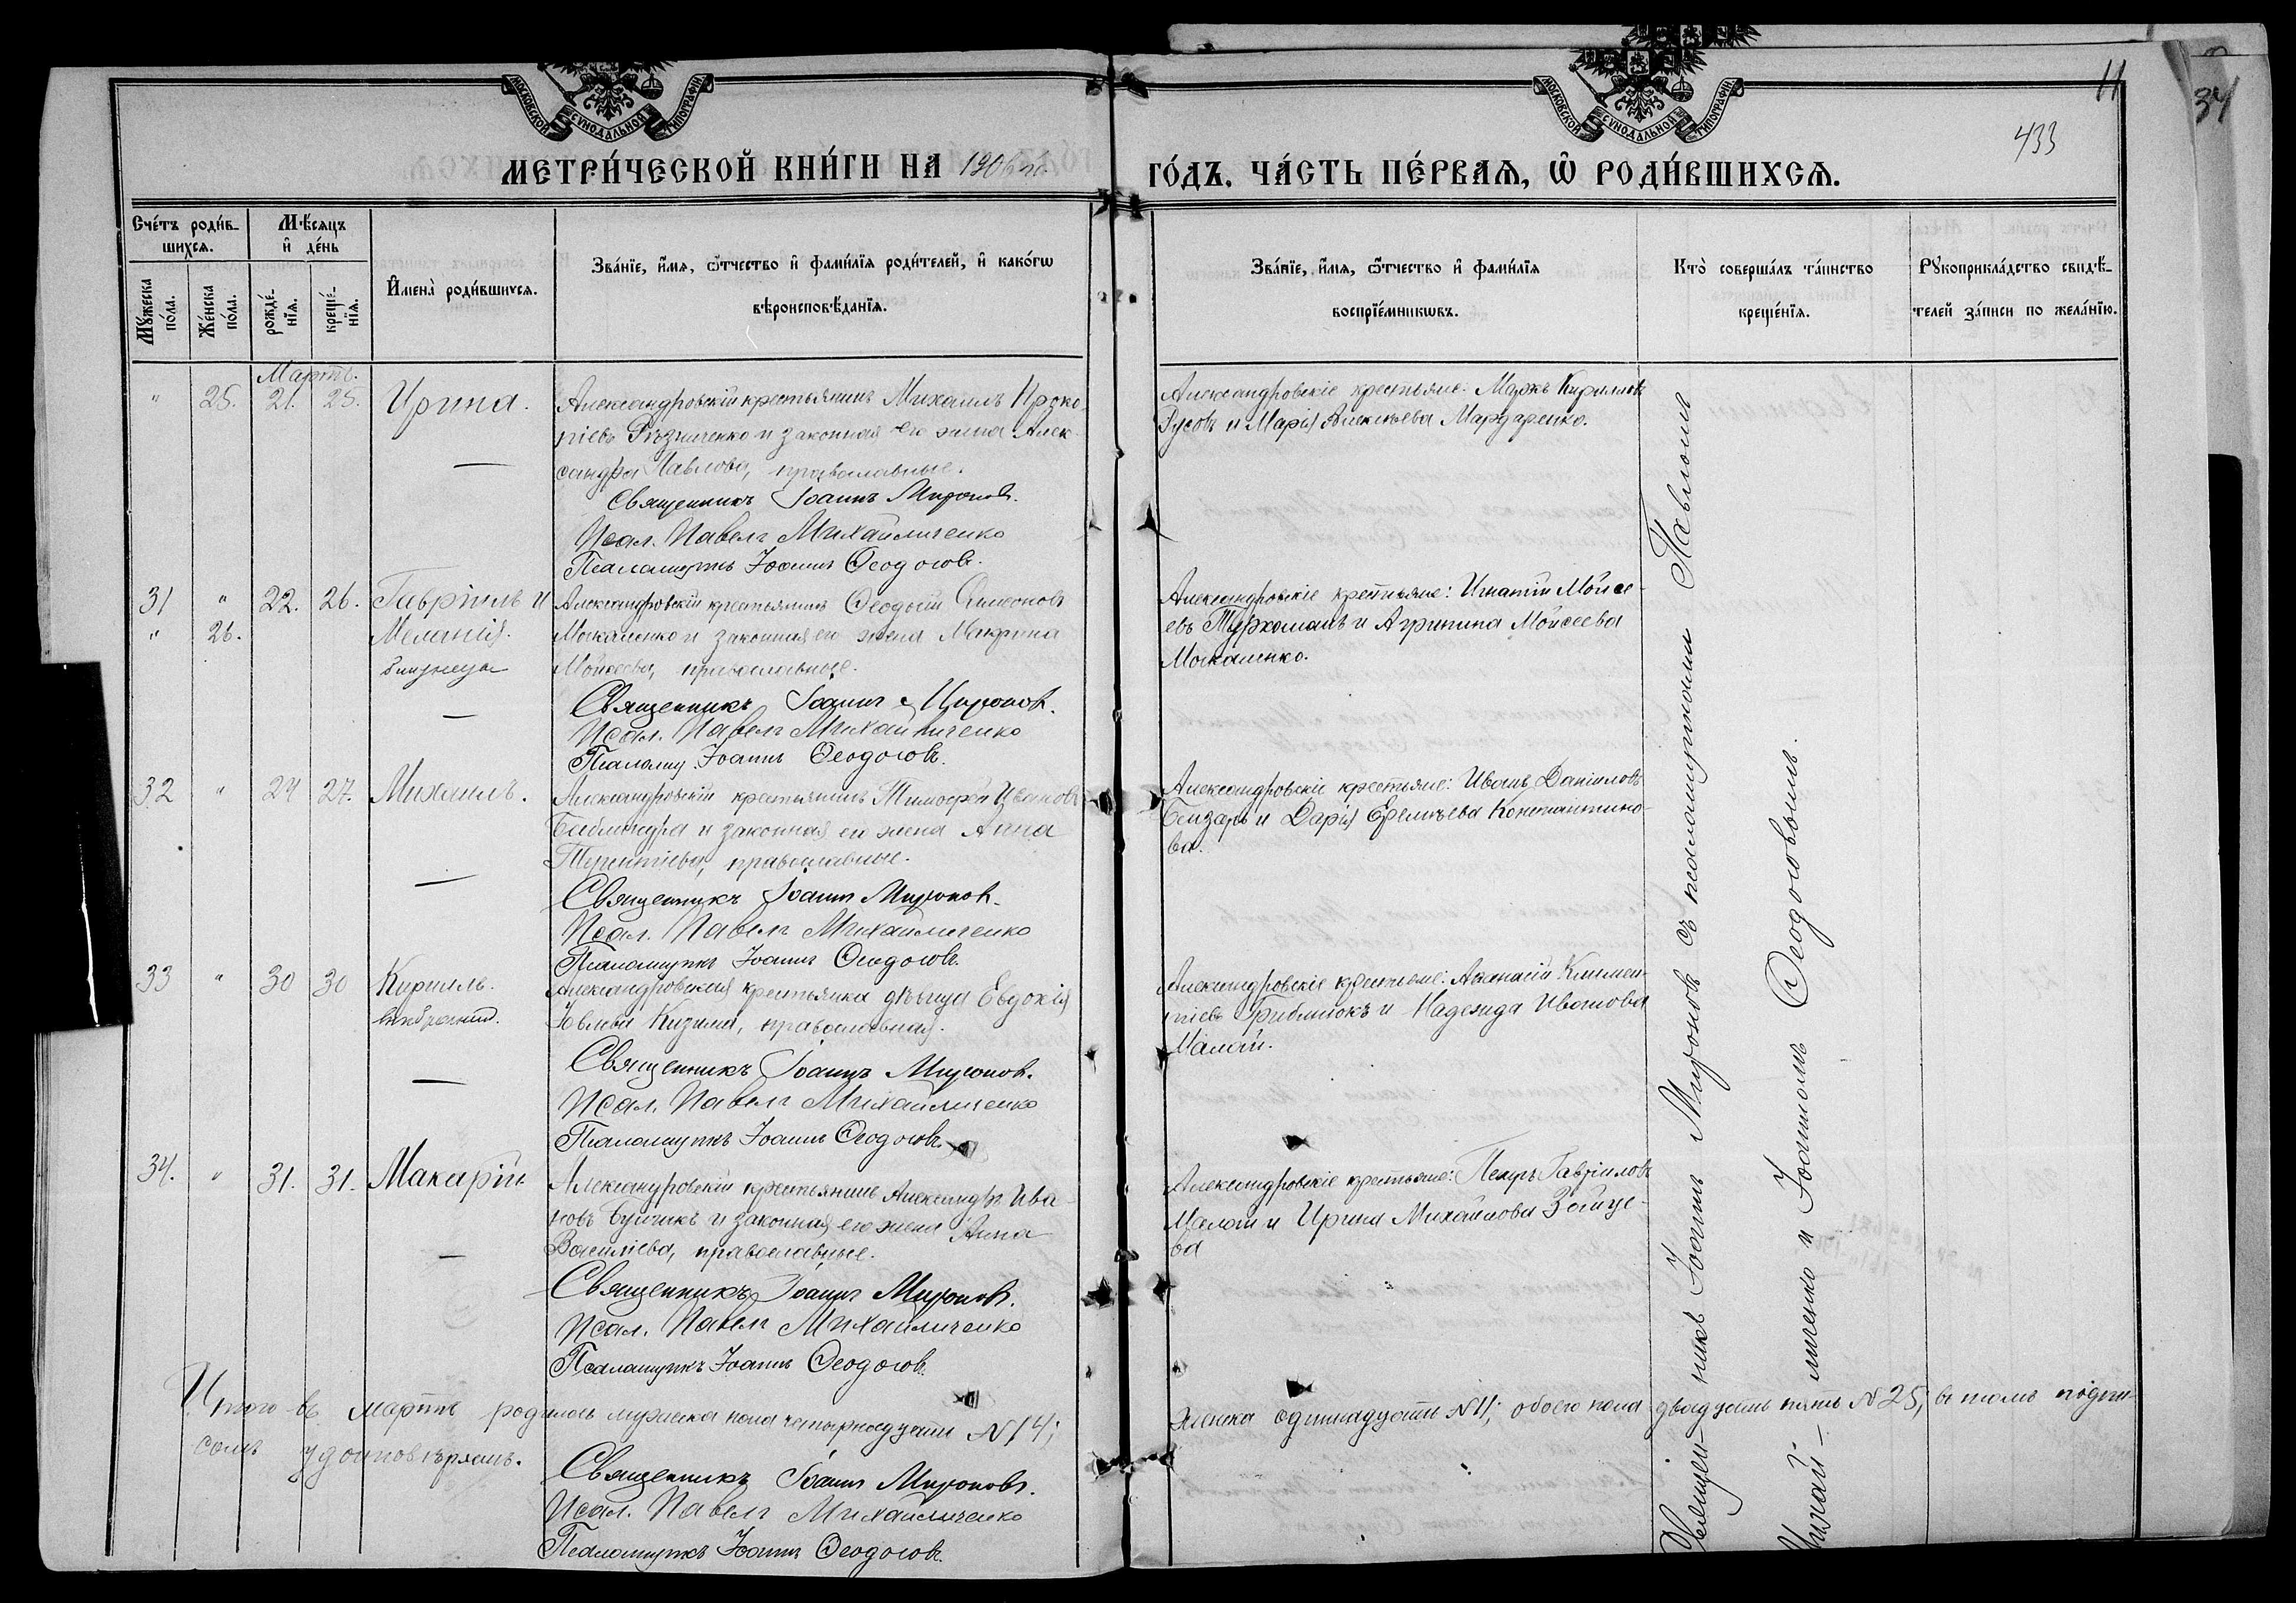 МОСКОВСКОЙ СѴНОДАЛЬНОЙ ТИПОГРАФІИ
МОСКОВСКОЙ СѴНОДАЛЬНОЙ ТИПОГРАФІИ
11
34
433
МЕТРИ́ЧЕСКОЙ КНИ́ГИ НА 1906й
ГО́ДЪ. ЧА́СТЬ ПЕ́РВАЯ, Ѡ҆ РОДИ́ВШИХСѦ.
Счéтъ роди́в-
шихсѧ.
Мѣ́сяцъ
и҆ дéнь
Мꙋ́жеска пóла.
Жéнска пóла.
рождé-нїѧ.
крещé-нїѧ.
И҆мена̀ роди́вшихсѧ.
Зва́нїе, и҆́мѧ, ѻ҆́тчество и҆ фами́лїѧ роди́телей, и҆ какóгѡ
вѣроисповѣ́данїѧ.
Зва́нїе, и҆́мѧ, ѻ҆́тчество и҆ фами́лїѧ
воспрїéмникѡвъ.
Ктò соверша́лъ та́инство
крещéнїѧ.
Рꙋкоприкла́дство свидѣ́-
телей за́писи по жела́нїю.
Мартъ.
" 25. 21. 25. Ирина.
Александровскій крестьянинъ Михаилъ Проко-
піевъ Рѣзниченко и законная его жена Алек-
сандра Павлова, православные.
Священникъ Іоаннъ Мироновъ.
Псал. Павелъ Михайличенко
Псаломщикъ Іоаннъ Ѳеодосовъ.
Александровскіе крестьяне: Маркъ Кирилловъ
Русовъ и Марія Алексѣева Мардаренко.
31 " 22. 26. Гавріилъ и
" 26. Меланія.
близнецы
Александровскій крестьянинъ Ѳеодосій Симеоновъ
Москаленко и законная его жена Макрина
Мойсеева, православные.
Священникъ Іоаннъ Мироновъ.
Псал. Павелъ Михайличенко
Псаломщ. Іоаннъ Ѳеодосовъ.
Александровскіе крестьяне: Игнатій Мойсе-
евъ Туркоманъ и Агрипина Мойсеева
Москаленко.
32 " 24 27. Михаилъ.
Александровскій крестьянинъ Тимоѳей Ивановъ
и законная его жена Анна
Терентіева, православные.
Священникъ Іоаннъ Мироновъ.
Псал. Павелъ Михайличенко
Псаломщикъ Іоаннъ Ѳеодосовъ.
Александровскіе крестьяне: Иванъ Даніиловъ
и Дарія Константино-
ва.
33 " 30 30 Кириллъ.
внѣбрачный.
Александровская крестьянка дѣвица Евдокія
Іовлева Кизима, православная.
Священникъ Іоаннъ Мироновъ.
Псал. Павелъ Михайличенко
Псаломщикъ Іоаннъ Ѳеодосовъ.
Александровскіе крестьяне: Аѳанасій Климен-
тіевъ Грибинюкъ и Надежда Иванова
Малай.
34. " 31. 31. Макарій
Александровскій крестьянинъ Александръ Ива-
новъ и законная его жена Анна
Василіева, православные.
Священникъ Іоаннъ Мироновъ.
Псал. Павелъ Михайличенко
Псаломщикъ Іоаннъ Ѳеодосовъ.
Александровскіе крестьяне: Петръ Гавріиловъ
Малай и Ирина Михайлова Зайце-
ва
Священ-никъ Іоаннъ Мироновъ съ псаломщиками Павломъ
Михай-личенко и Іоанномъ Ѳеодосовымъ.
Итого въ мартѣ родилось мужеска пола четырнадцать №14;
женска одиннадцать №11; обоего пола двадцать пять №25; въ томъ подпи-
семъ удостовѣряемъ.
Священникъ Іоаннъ Мироновъ.
Псал. Павелъ Михайличенко
Псаломщикъ Іоаннъ Ѳеодосовъ.